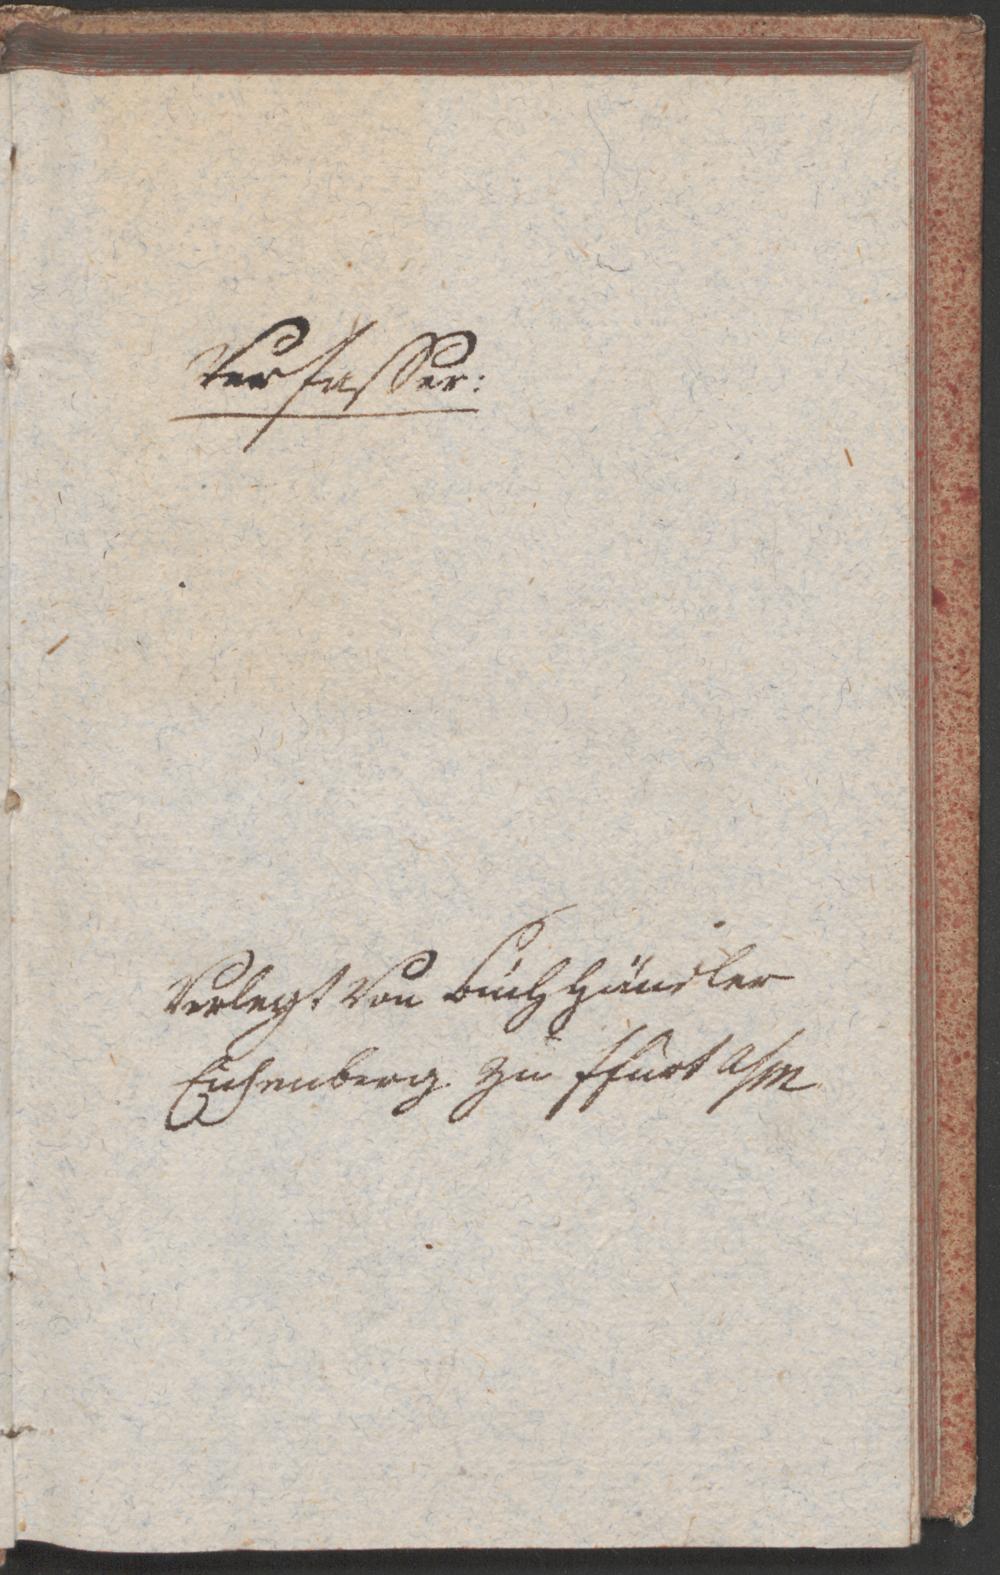 Verfasser:
Verlegt von Buchhändler
Eichenberg zu Ffurt a/m